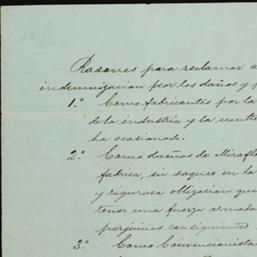 Razones para reclamar a
indemnizacion por los daños y p
1.º Como fabricantes por la
de la industria y la inuti
ha ocasionado.
2.º Como dueños de Miraflo
fabrica, sin saqueo en la
y rigurosa obligacion que
tener una fuerza armada
perjuicios consiguientes
3.º Como Convencionista